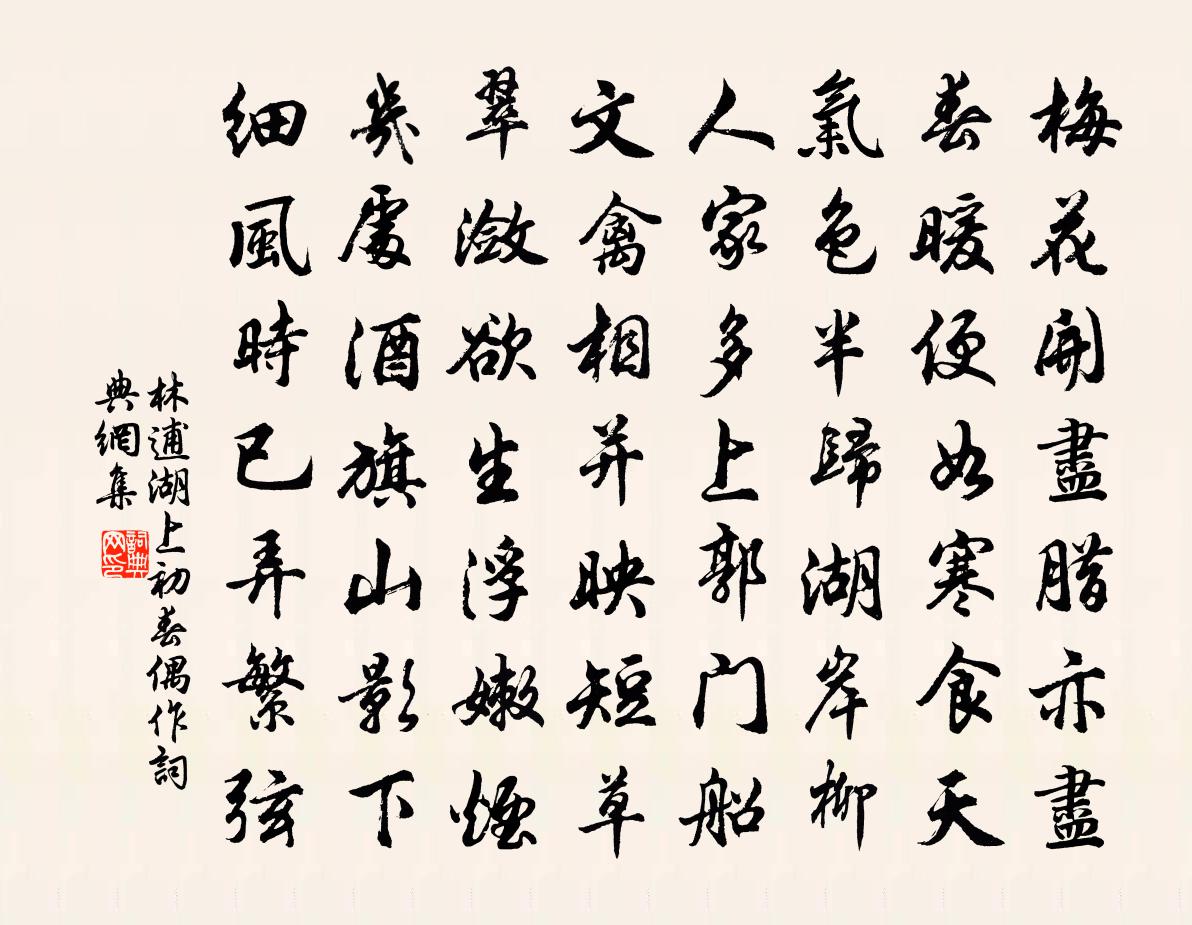 梅花開盡臘亦盡
春暖便如寒食天
氣色半歸湖岸柳
人家多上郭門船
文禽相并映短草
翠瀲欲生浮嫩煙
幾處酒旗山影下
細風時已弄繁弦
林逋湖上初春偶作詞
典網集
詞典网印